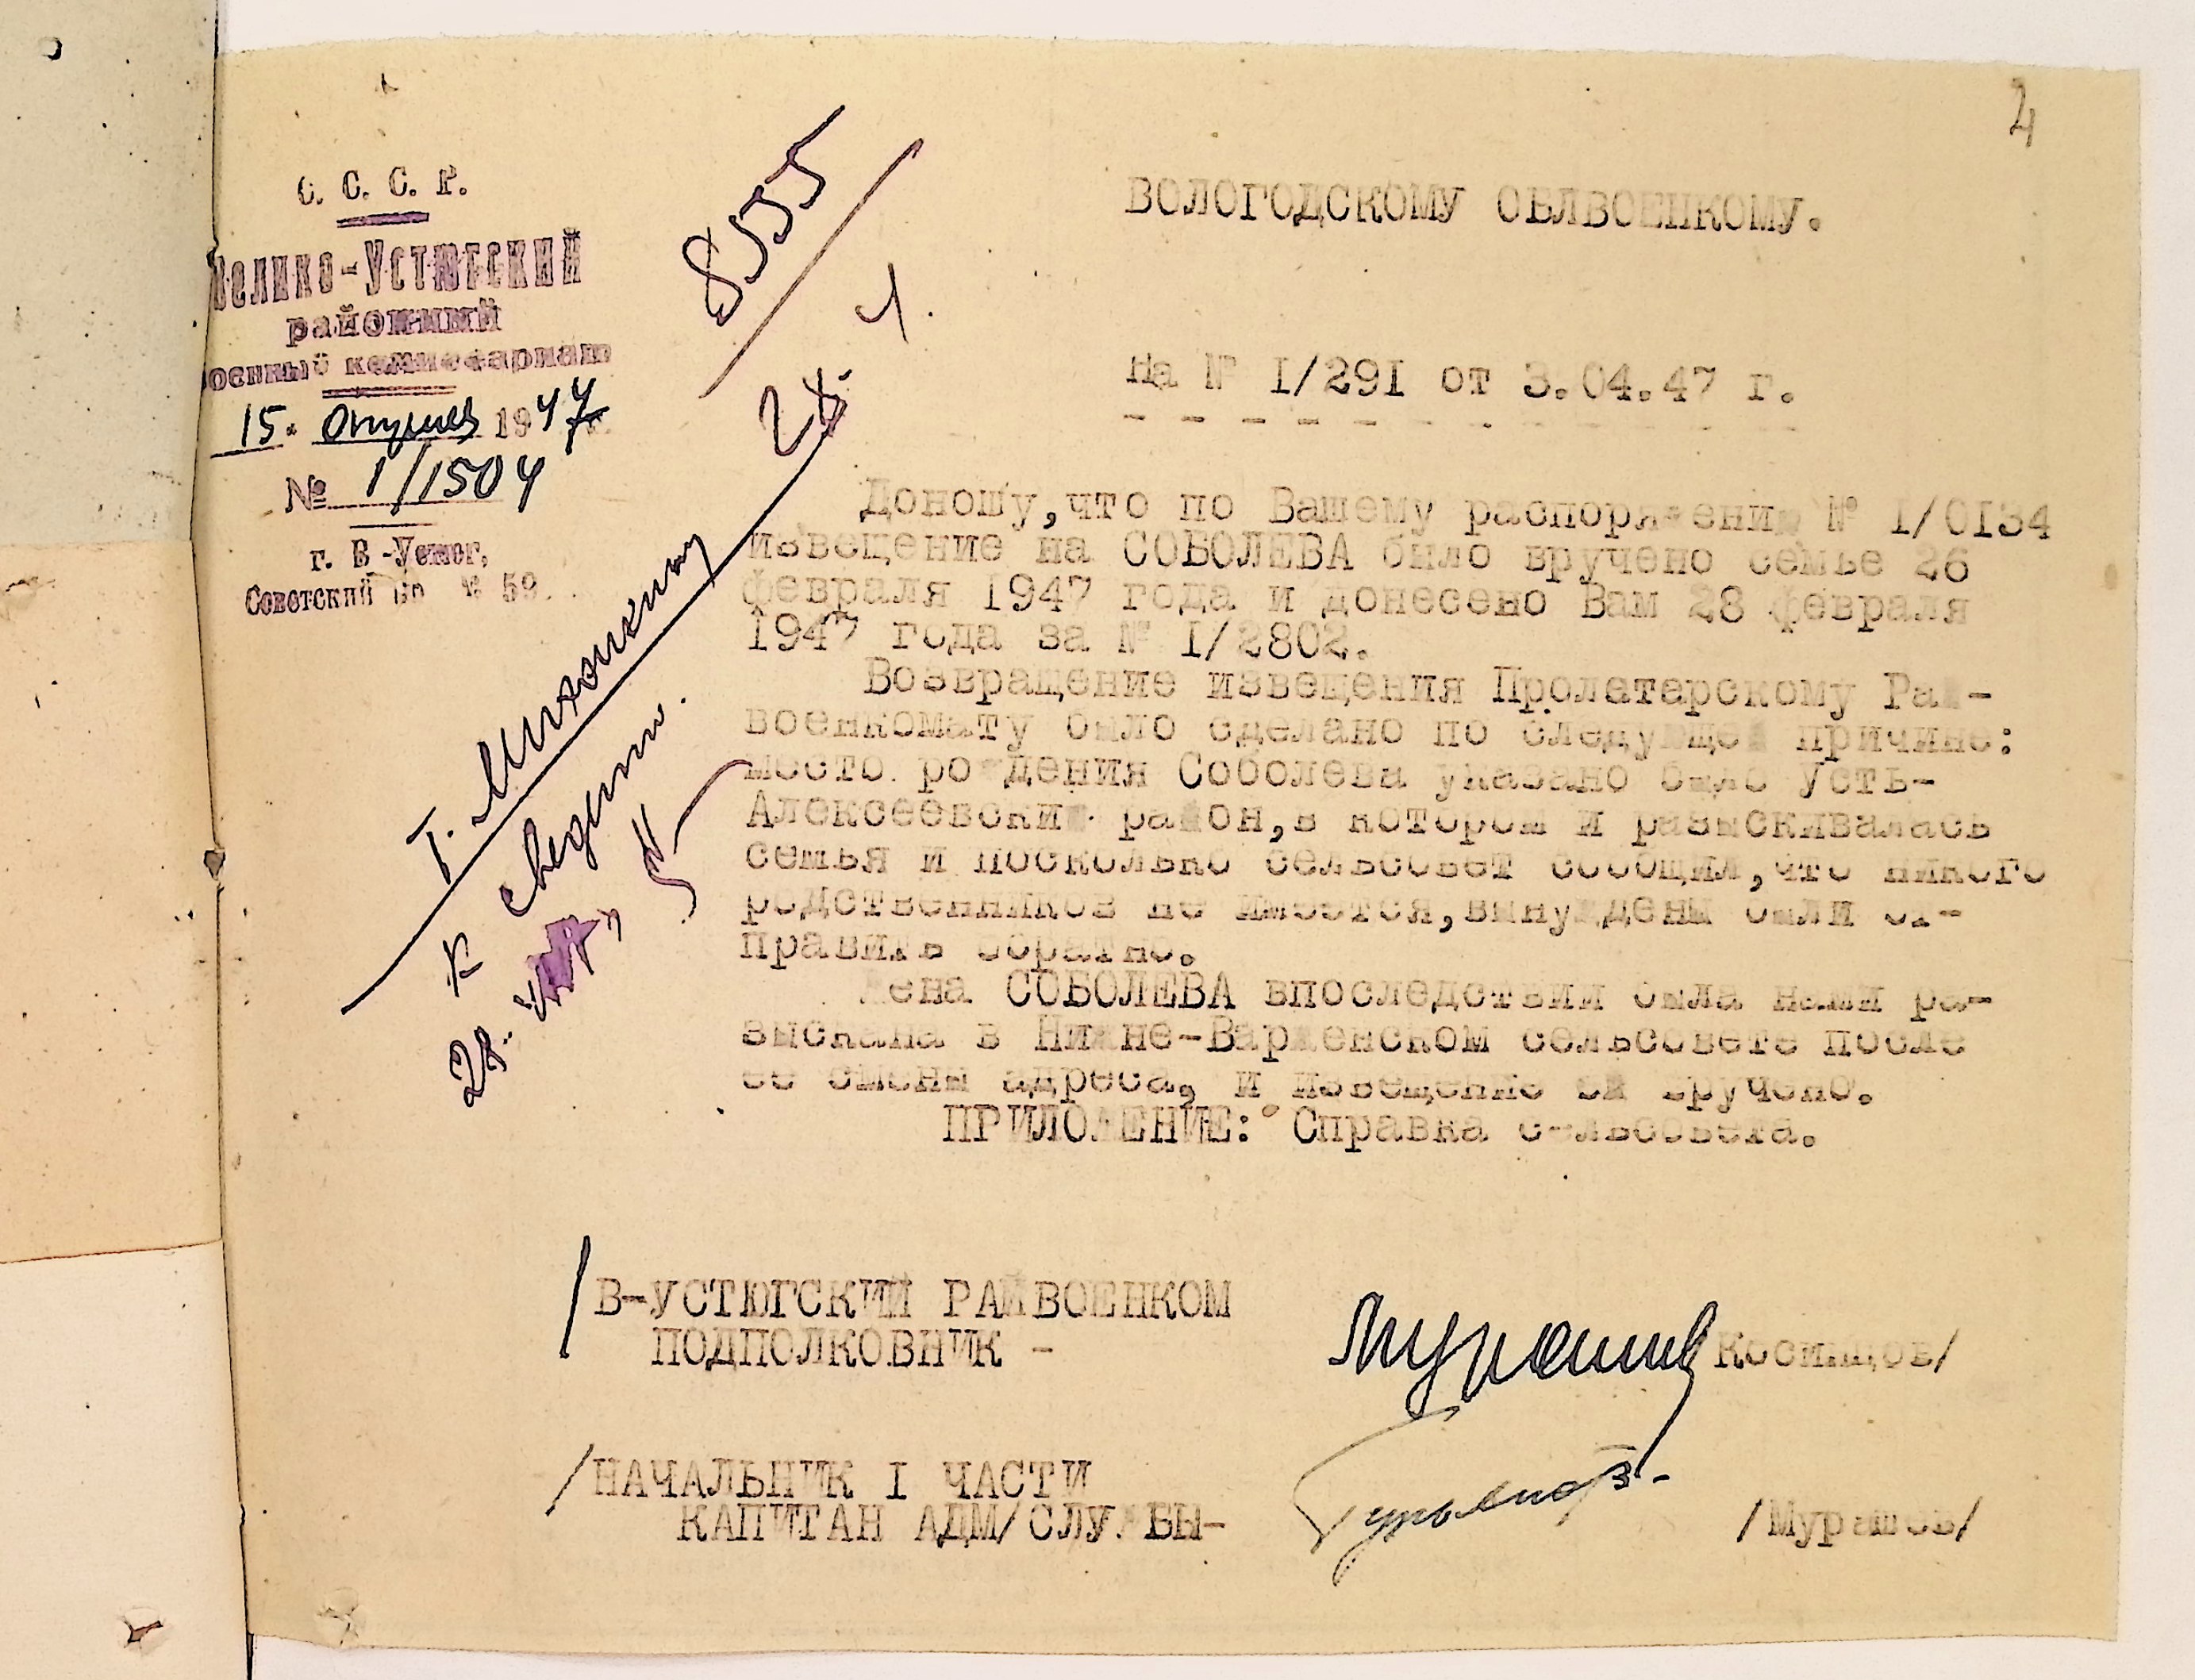 4
С. С. С. Р.
Велико-Устюгский
районный
военный комиссариат
15. апреля 1947
№ 1/1504
г. В-Устюг,
Советский пр № 59.
8555
Т.
к сведению.
28.
ВОЛОГОДСКОМУ ОБЛВОЕНКОМУ.
На № I/29I от 3.04.47 г.
Доношу,что по Вашему распоряжению № 1/0134
извещение на СОБОЛЕВА было вручено семье 26
февраля 1947 года и донесено Вам 28 февраля
1947 года за № I/2802.
Возвращение извещения Пролетарскому Рай-
военкомату было сделано по следующей причине:
место рождения Соболева указано было Усть-
Алексеевский район,в котором и разыскивалась
семья и поскольку сельсовет сообщил,что никого
родственников не имеется,вынуждены были от-
править обратно.
Жена СОБОЛЕВА впоследствии была нами ра-
зыскана в Нижне-Варженском сельсовете после
ее смены адреса, и извещение ей вручено.
ПРИЛОЖЕНИЕ: Справка сельсовета.
/В-УСТЮГСКИЙ РАЙВОЕНКОМ
ПОДПОЛКОВНИК - Косинцов/
/НАЧАЛЬНИК I ЧАСТИ
КАПИТАН АДМ/СЛУЖБЫ- /Мурашов/